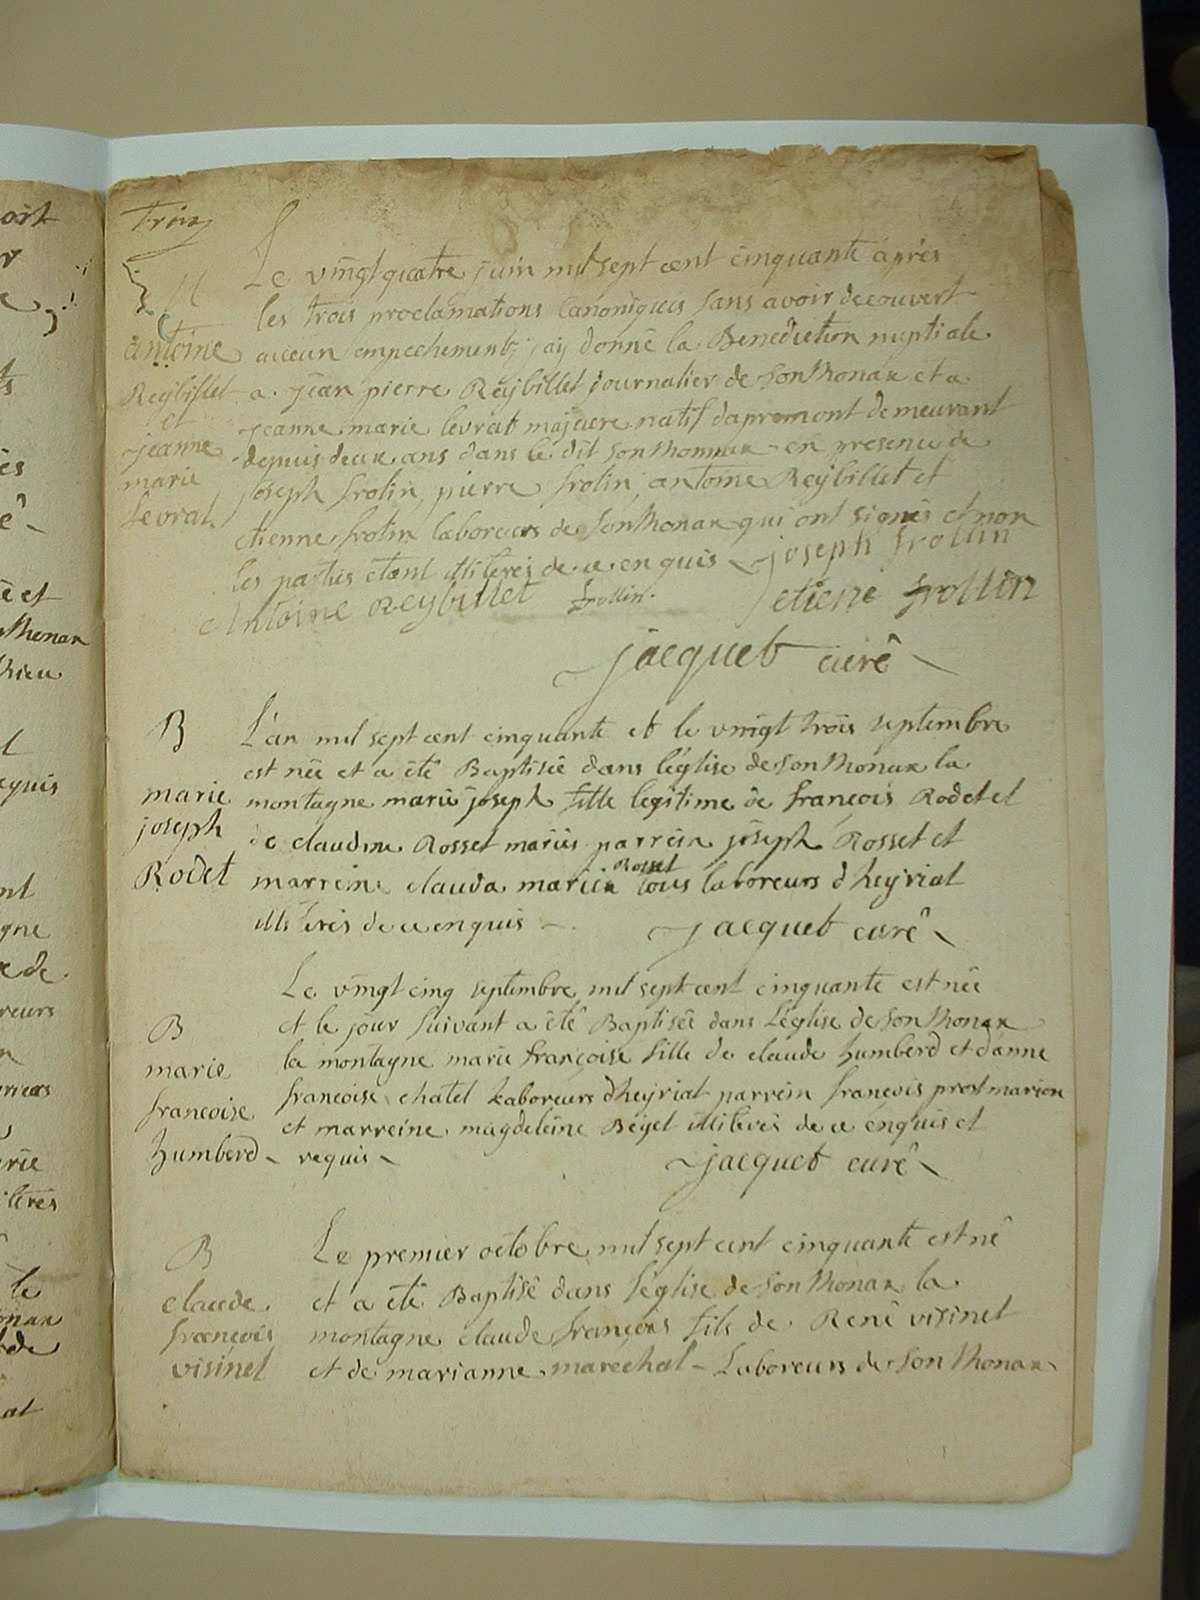 Trois
M
antoine
Reybillet
et
jeanne
marie
Levrat
Le vingt quatre juin mil sept cent cinquante après
les trois proclamations canoniques sans avoir decouvert
aucun empechement j'aij donné la Benediction nuptiale
a jean pierre Reijbillet journalier de Sonthonax et a
jeanne marie levrat majeure natif dapremont demeurant
depuis deux ans dans le dit Sonthonnax en presence de
joseph frolin, pierre frolin, antoine Reijbillet et
etienne frolin laboreurs de Sonthonax qui ont signés et non
les parties etant illiterés de ce enquis joseph frollin
Antoine Reybillet frollin. etiene frollin
jacquet curê
B
marie
joseph
Rodet
L'an mil sept cent cinquante et le vingt trois septembre
est née et a été Baptisée dans l'église de Sonthonax la
montagne marie joseph fille legitime de françois Rodet et
de claudine Rosset mariés parrein joseph Rosset et
marreine clauda marie Rosset tous laboreurs d'heyriat
illiterés de ce enquis jacquet curê
B
marie
francoise
humberd
Le vingt cinq septembre mil sept cent cinquante est née
et le jour suivant a été Baptisée dans L'église de Sonthonax
la montagne marie françoise fille de claude humberd et danne
francoise chatel Laboreurs dheyriat parrein françois prost marion
et marreine magdeleine Beyet illiterés de ce enquis et
requis jacquet curê
B
claude
francois
visinet
Le premier octobre mil sept cent cinquante est né
et a été Baptisé dans l'église de Sonthonax la
montagne claude françois fils de René visinet
et de marianne maréchal Laboreurs de Sonthonax